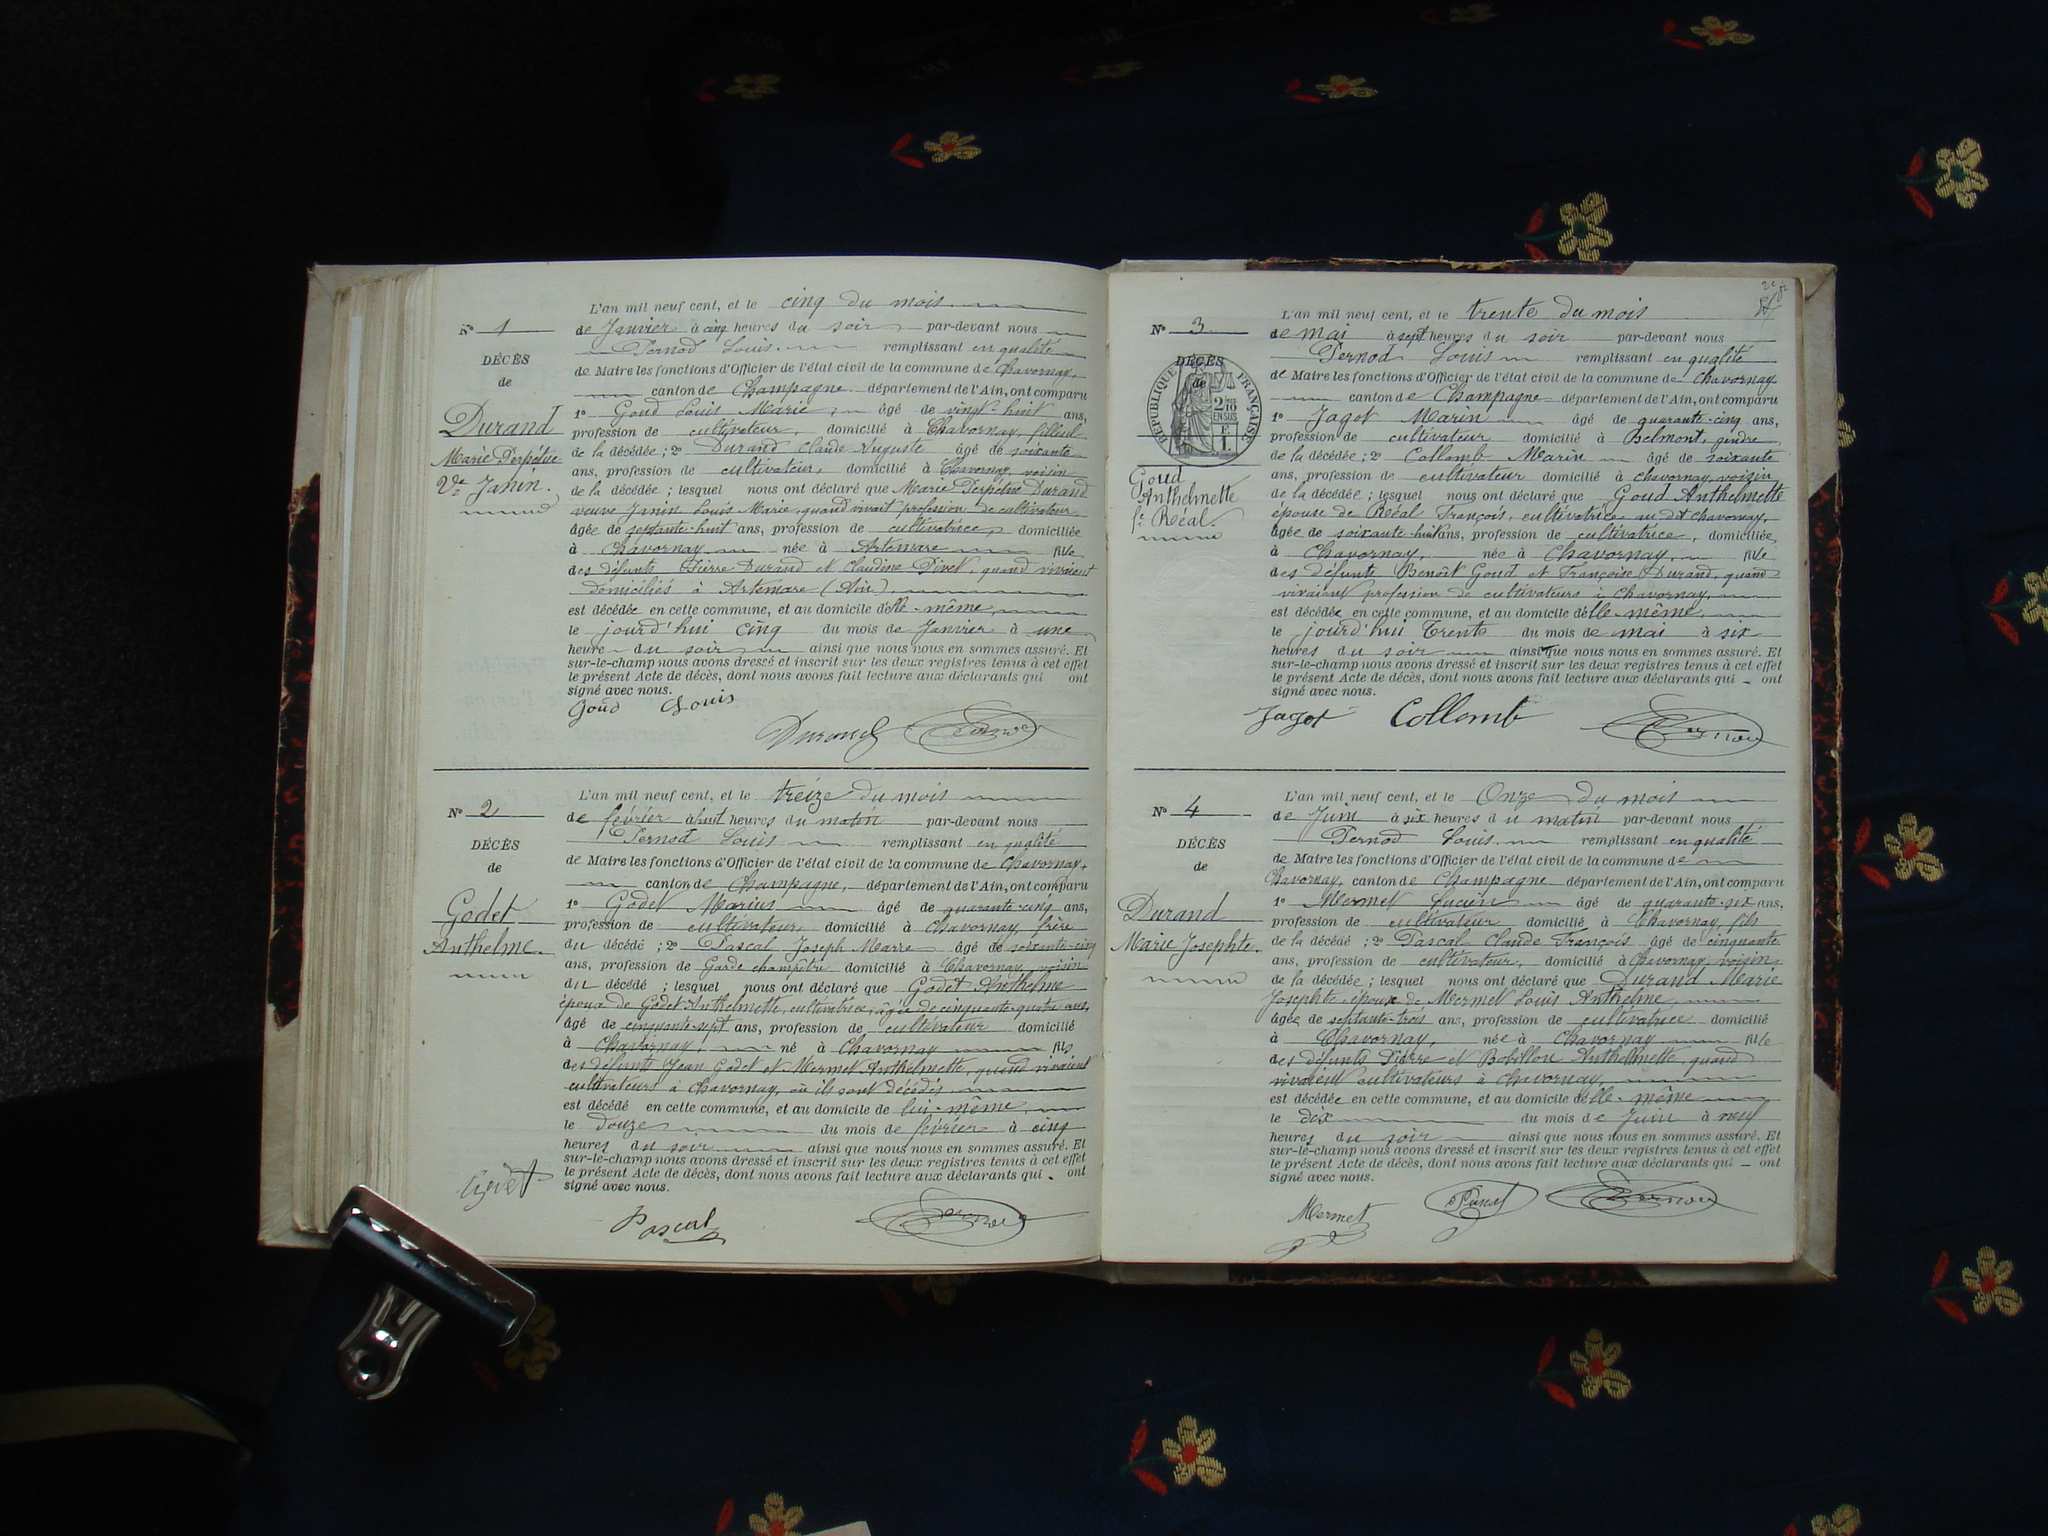 L'an mil neuf cent, et le cinq du mois
N° 1
de Janvier à cinq heures du soir par-devant nous
Pernod Louis. remplissant en qualité
DÉCÈS
de Maire les fonctions d'Officier de l'état civil de la commune de Chavornay,
de
canton de Champagne département de l'Ain, ont comparu
Durand
Marie Perpétue
Ve Janin.
1° Goud Louis Marie, âgé de vingt-huit ans,
profession de cultivateur, domicilié à Chavornay, filleul
de la décédée ; 2° Durand Claude Auguste âgé de soixante
ans, profession de cultivateur, domicilié à Chavornay, voisin
de la décédée ; lesquel nous ont déclaré que Marie Perpétue Durand
veuve Janin Louis Marie, quand vivait profession de cultivateur,
âgée de septante-huit ans, profession de cultivatrice, domiciliée
à Chavornay née à Artemare fille
des défunts Pierre Durand et Claudine Pivet, quand vivaient
domiciliés à Artemare (Ain),
est décédée en cette commune, et au domicile d'elle-même,
le jourd'hui cinq du mois de Janvier à une
heure du soir ainsi que nous nous en sommes assuré. Et
sur-le-champ nous avons dressé et inscrit sur les deux registres tenus à cet effet
le présent Acte de décès, dont nous avons fait lecture aux déclarants qui ont
signé avec nous.
Goud Louis
Durand Pernod
L'an mil neuf cent, et le treize du mois
N° 2
de février à huit heures du matin par-devant nous
Pernod Louis remplissant en qualité
DÉCÈS
de Maire les fonctions d'Officier de l'état civil de la commune de Chavornay,
de
canton de Champagne, département de l'Ain, ont comparu
Godet
Anthelme.
1° Godet Marius âgé de quarante-cinq ans,
profession de cultivateur domicilié à Chavornay, frère
du décédé ; 2° Pascal Joseph Marie âgé de soixante-cinq
ans, profession de Garde champêtre domicilié à Chavornay, voisin
du décédé ; lesquel nous ont déclaré que Godet Anthelme
époux de Godet Anthelmette, cultivatrice, âgée de cinquante-quatre ans,
âgé de cinquante-sept ans, profession de cultivateur domicilié
à Chavornay, né à Chavornay fils
des défunts Jean Godet et Mermet Anthelmette, quand vivaient
cultivateurs à Chavornay, où ils sont décédés
est décédé en cette commune, et au domicile de lui-même,
le douze du mois de février à cinq
heures du soir ainsi que nous nous en sommes assuré. Et
sur-le-champ nous avons dressé et inscrit sur les deux registres tenus à cet effet
le présent Acte de décès, dont nous avons fait lecture aux déclarants qui ont
signé avec nous.
Pascal Pernod
L'an mil neuf cent, et le trente du mois
N° 3
de mai à sept heures du soir par-devant nous
Pernod Louis remplissant en qualité
DÉCÈS
de Maire les fonctions d'Officier de l'état civil de la commune de Chavornay
de
canton de Champagne département de l'Ain, ont comparu
RÉPUBLIQUE FRANÇAISE
Goud
Anthelmette
fe Réal.
1° Jagot Marin âgé de quarante-cinq ans,
profession de cultivateur domicilié à Belmont, gendre
de la décédée ; 2° Collomb Marin âgé de soixante
ans, profession de cultivateur domicilié à Chavornay, voisin
de la décédée ; lesquel nous ont déclaré que Goud Anthelmette
épouse de Réal François, cultivatrice au dit Chavornay,
âgée de soixante-huit ans, profession de cultivatrice, domiciliée
à Chavornay, née à Chavornay, fille
des défunts Benoît Goud et Françoise Durand, quand
vivaient profession de cultivateurs à Chavornay,
est décédée en cette commune, et au domicile d'elle-même,
le jourd'hui trente du mois de mai à six
heures du soir ainsi que nous nous en sommes assuré. Et
sur-le-champ nous avons dressé et inscrit sur les deux registres tenus à cet effet
le présent Acte de décès, dont nous avons fait lecture aux déclarants qui ont
signé avec nous.
Jagot Collomb Pernod
L'an mil neuf cent, et le Onze du mois
N° 4
de Juin à six heures du matin par-devant nous
Pernod Louis remplissant en qualité
DÉCÈS
de Maire les fonctions d'Officier de l'état civil de la commune de
de
Chavornay, canton de Champagne département de l'Ain, ont comparu
Durand
Marie Josephte.
1° Mermet Lucien âgé de quarante-six ans,
profession de cultivateur domicilié à Chavornay, fils
de la décédée ; 2° Pascal Claude François âgé de cinquante
ans, profession de cultivateur, domicilié à Chavornay, voisin
de la décédée ; lesquel nous ont déclaré que Durand Marie
Josephte épouse de Mermet Louis Anthelme,
âgée de septante-trois ans, profession de cultivatrice domicilié
à Chavornay, née à Chavornay fille
des défunts Pierre et Bobillon Anthelmette, quand
vivaient cultivateurs à Chavornay,
est décédée en cette commune, et au domicile d'elle-même
le dix du mois de Juin à neuf
heures du soir ainsi que nous nous en sommes assuré. Et
sur-le-champ nous avons dressé et inscrit sur les deux registres tenus à cet effet
le présent Acte de décès, dont nous avons fait lecture aux déclarants qui ont
signé avec nous.
Mermet Pascal Pernod